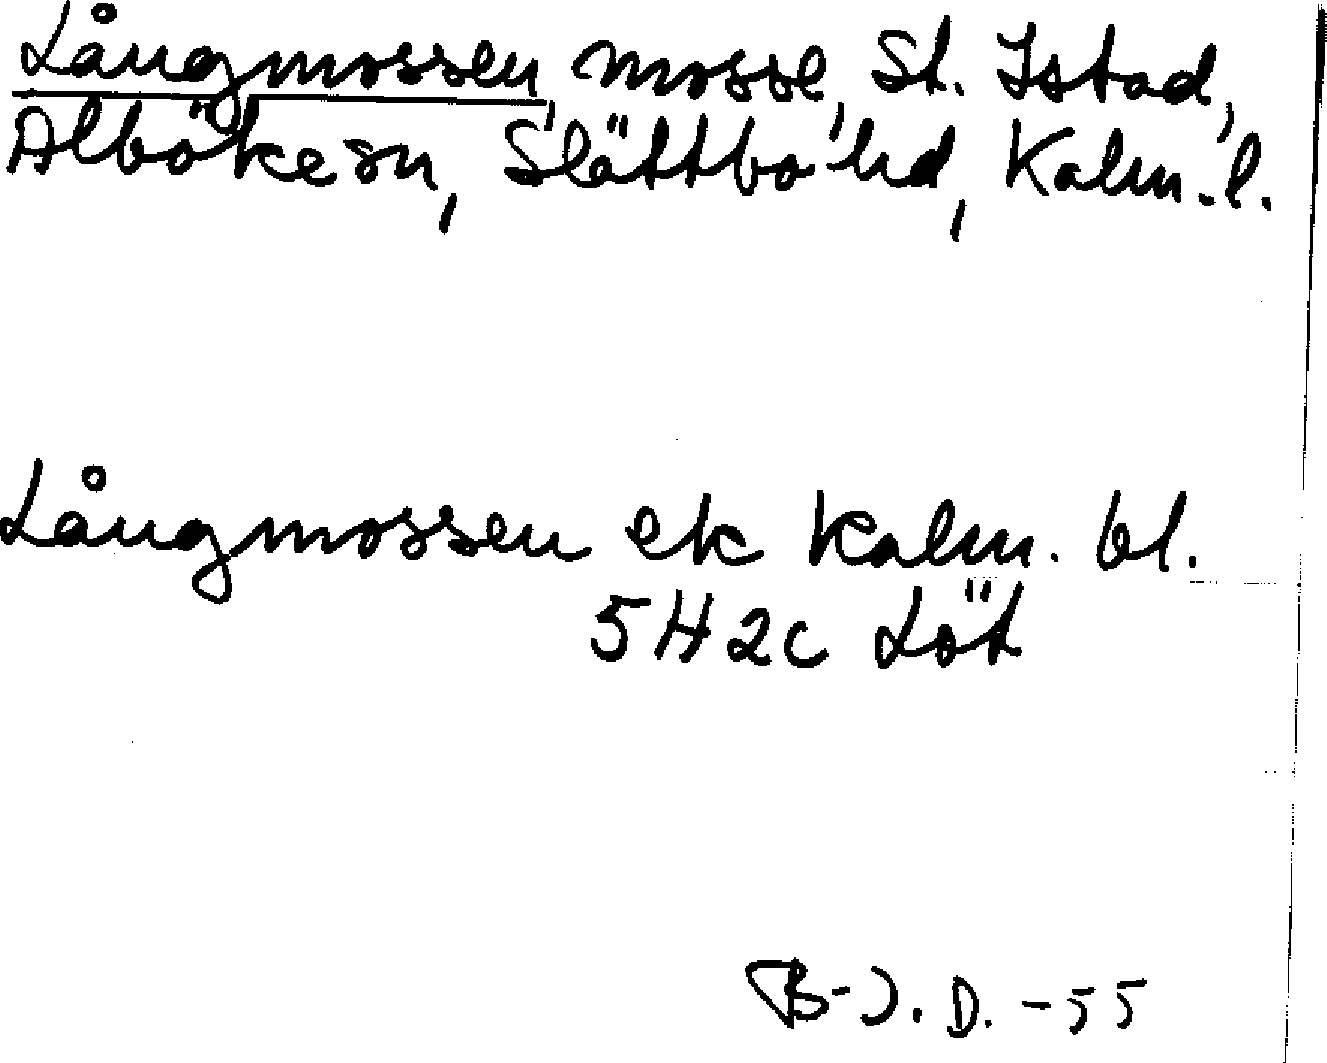 Långmossen, mosse, St. Istad,
Alböke sn, Slättbo hd, Kalm. l.
Långmossen ek Kalm. bl.
5H2c Löt
B-J. D. -55